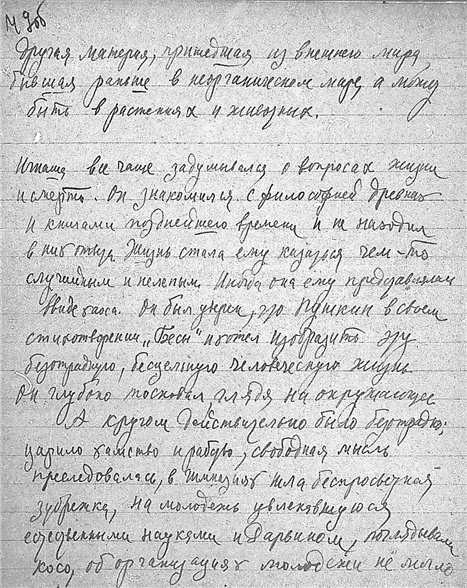 другая материя, пришедшая из внешнего мира,
бывшая раньше в неорганическом мире, а может
быть в растениях и животных.
все чаще задумывался о вопросах жизни
и смерти. Он знакомился с философией древних
и книгами позднейшего времени и не находил
в них ответа. Жизнь стала ему казаться чем-то
случайным и нелепым. Иногда она ему представлялась
в виде хаоса. Он был уверен, что Пушкин в своем
стихотворении „Бесы" и хотел изобразить эту
безотрадную, бесцельную человеческую жизнь.
Он глубоко тосковал глядя на окружающее
А кругом действительно было безотрадно:
царило хамство и рабство, свободная мысль
преследовалась, в гимназиях шла беспросветная
зубрежка, на молодежь увлекавшуюся
естественными науками и Дарвином, поглядывали
косо, об организациях молодежи не могло